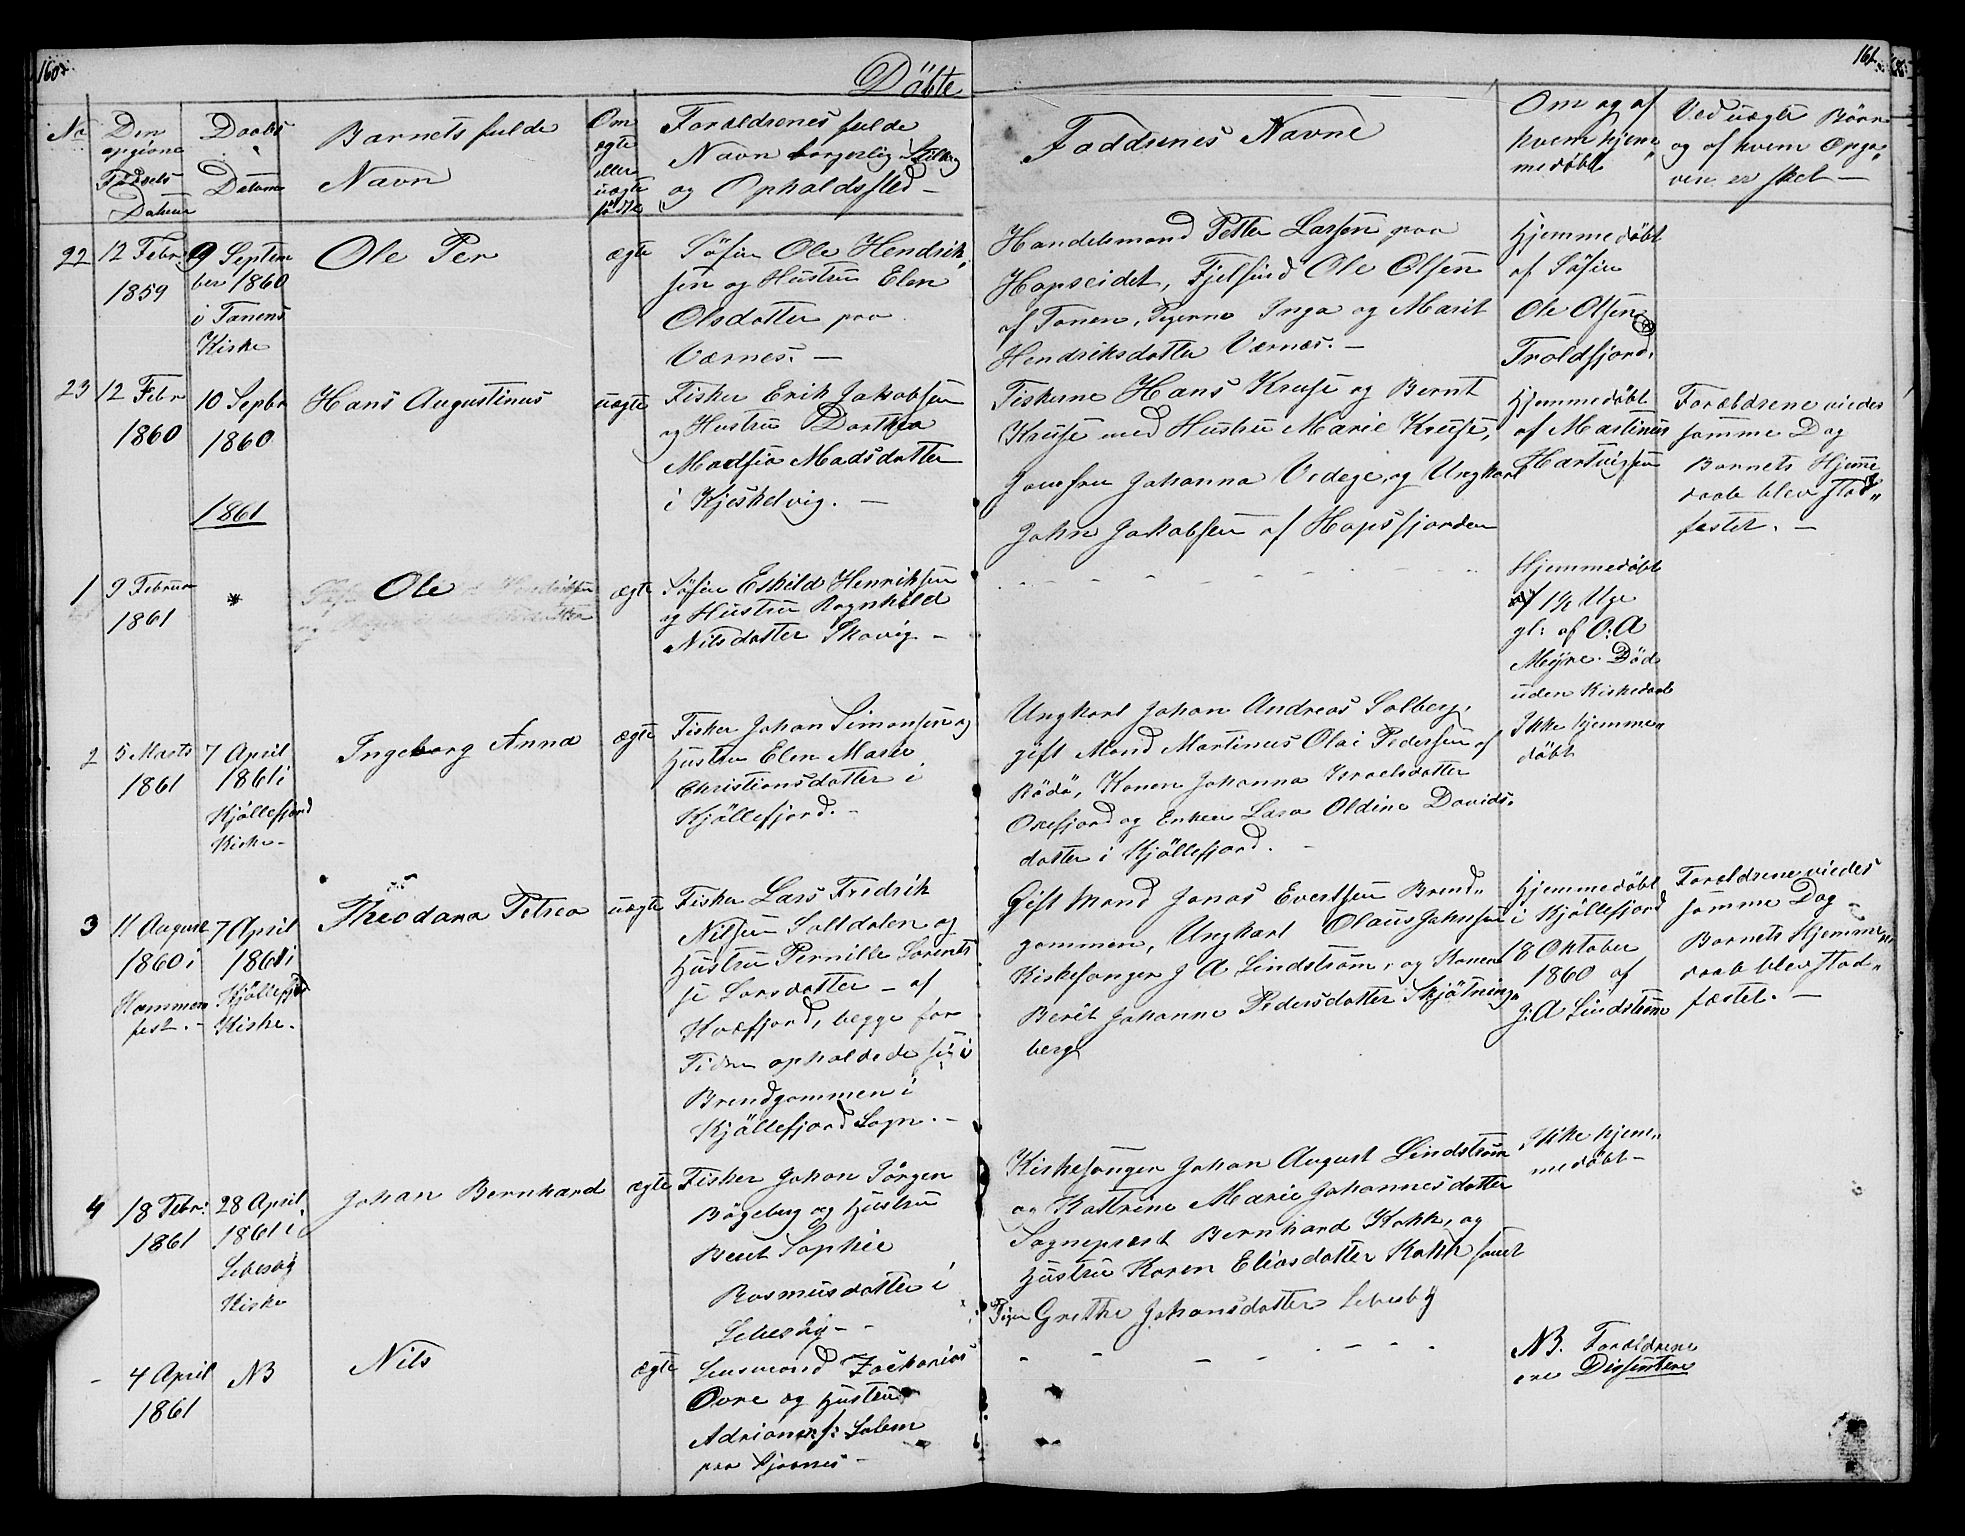 160.
161.
Döbte
No
Den
opgivne
Födsels
Datum
Daabs
Datum
Barnets fulde
Navn
Om
ægte
eller
uægte
födte
Forældrenes fulde
Navn borgerlig Stilling
og Opholdssted
Faddrenes Navne
Om og af
hvem hjem
medöbt
Ved uægte Börn
og af hvem Opga
ven er sket
22
12 Febr
1859
9 Septem
ber 1860
i Tanens
Kirke
Ole Per
ægte
Söfin Ole Hendrik
sen og Hustru Elen
Olsdatter paa
Værnes.
Handelsmand Petter Larsen paa
Hapseidet, Fjelfind Ole Olsen
af Tanen, Pigerne Inga og Marit
Hendriksdatter Værnes.
Hjemmedöbt
af Söfin
Ole Olsen
Troldfjord.
23
12 Febr
1860
10 Sepbr
1860
Hans Augustinus
uægte
Fisker Erik Jakobsen
og Hustru Dorthea
Madsdatter
i Kjeskelvig.
Fiskerne Hans Kruse og Bernt
Kruse med Hustru Marie Kruse,
Jomfru Johanna og Ungkarl
John Jakobsen af Hopsfjorden
Hjemmedöbt
af Martinus
Forældrene viedes
samme Dag
Barnets Hjemme
daab blev stad
fæstet.
1861
1
9 Februar
1861
Ole
ægte
Söfin Eskild Henriksen
og Hustru Ragnhild
Nilsdatter Skovig
Hjemmedöbt
1½ Uge
gl: af O: A
Meyre. Död
uden Kirkedaab
2
5 Marts
1861
7 April
1861 i
Kjöllefjord
Kirke
Ingeborg Anna
ægte
Fisker Johan Simonsen og
Hustru Elen Marie
Christiansdatter i
Kjöllefjord.
Ungkarl Johan Andreas Solberg,
gift Mand Martinus Olai Pedersen af
Rödö, Konen Johanna Israelsdatter
Oxefjord og Enken Lava Oldine Davids
datter i Kjöllefjord.
Ikke hjemme
döbt
3
11 August
1860 i
Hammer
fest.
7 April
1861 i
Kjöllefjord
Kirke.
Theodora Petrea
uægte
Fisker Lars Fredrik
Nilsen Saltdalen og
Hustru Pernille Lorent
se Larsdatter af
begge for
Tiden opholdede sig i
Brendgammen i
Kjöllefjord Sogn.
Gift Mand Jonas Evertsen Brend
gammen, Ungkarl Olaus Johnsen
Kirkesanger J A Lindström, og Konen
Berit Johanne Pedersdatter Skjötninge
berg
Hjemmedöbt
i Kjöllefjord
18 Oktober
1860 af
J: A Lindström
Forældrene viedes
samme Dag
Barnets Hjemme
daab blev stad
fæstet.
4
18 Febr:
1861
28 April
1861 i
Lebesby
Kirke
Johan Bernhard
ægte
Fisker Johan Jörgen
Bögeberg og Hustru
Berit Sophie
Rasmusdatter i
Lebesby
Kirkesanger Johan August Lindström
og Kattrine Marie Johannesdatter
Sognepræst Bernhard Kokk, og
Hustru Karen Eliasdatter Kokk samt
Pigen Grethe Johansdatter Lebesby
Ikke hjem
medöbt
4 April
1861
NB
Nils
ægte
Lensmand Zackarias
Ovre og Hustru
f: Solem
paa
NB. Forældrene
ere Dissentere